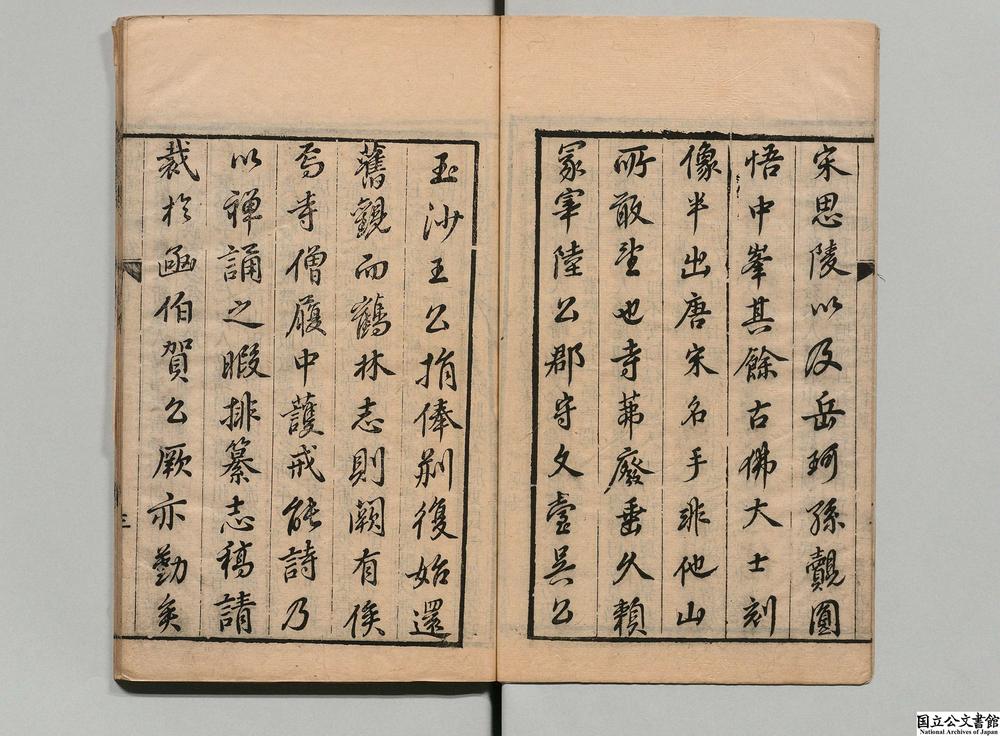 宋思陵以及岳珂孫覿圜
悟中峯其餘古佛大士刻
像半出唐宋名手非他山
所敢望也寺茀廢垂久賴
冢宰陸公郡守文臺吳公
玉沙王公捐俸剏復始還
舊觀而鶴林志則闕有俟
焉寺僧履中護戒能詩乃
以禪誦之暇排纂志稿請
裁於函伯賀公厥亦勤矣
三
国立公文書館
National Archives of Japan